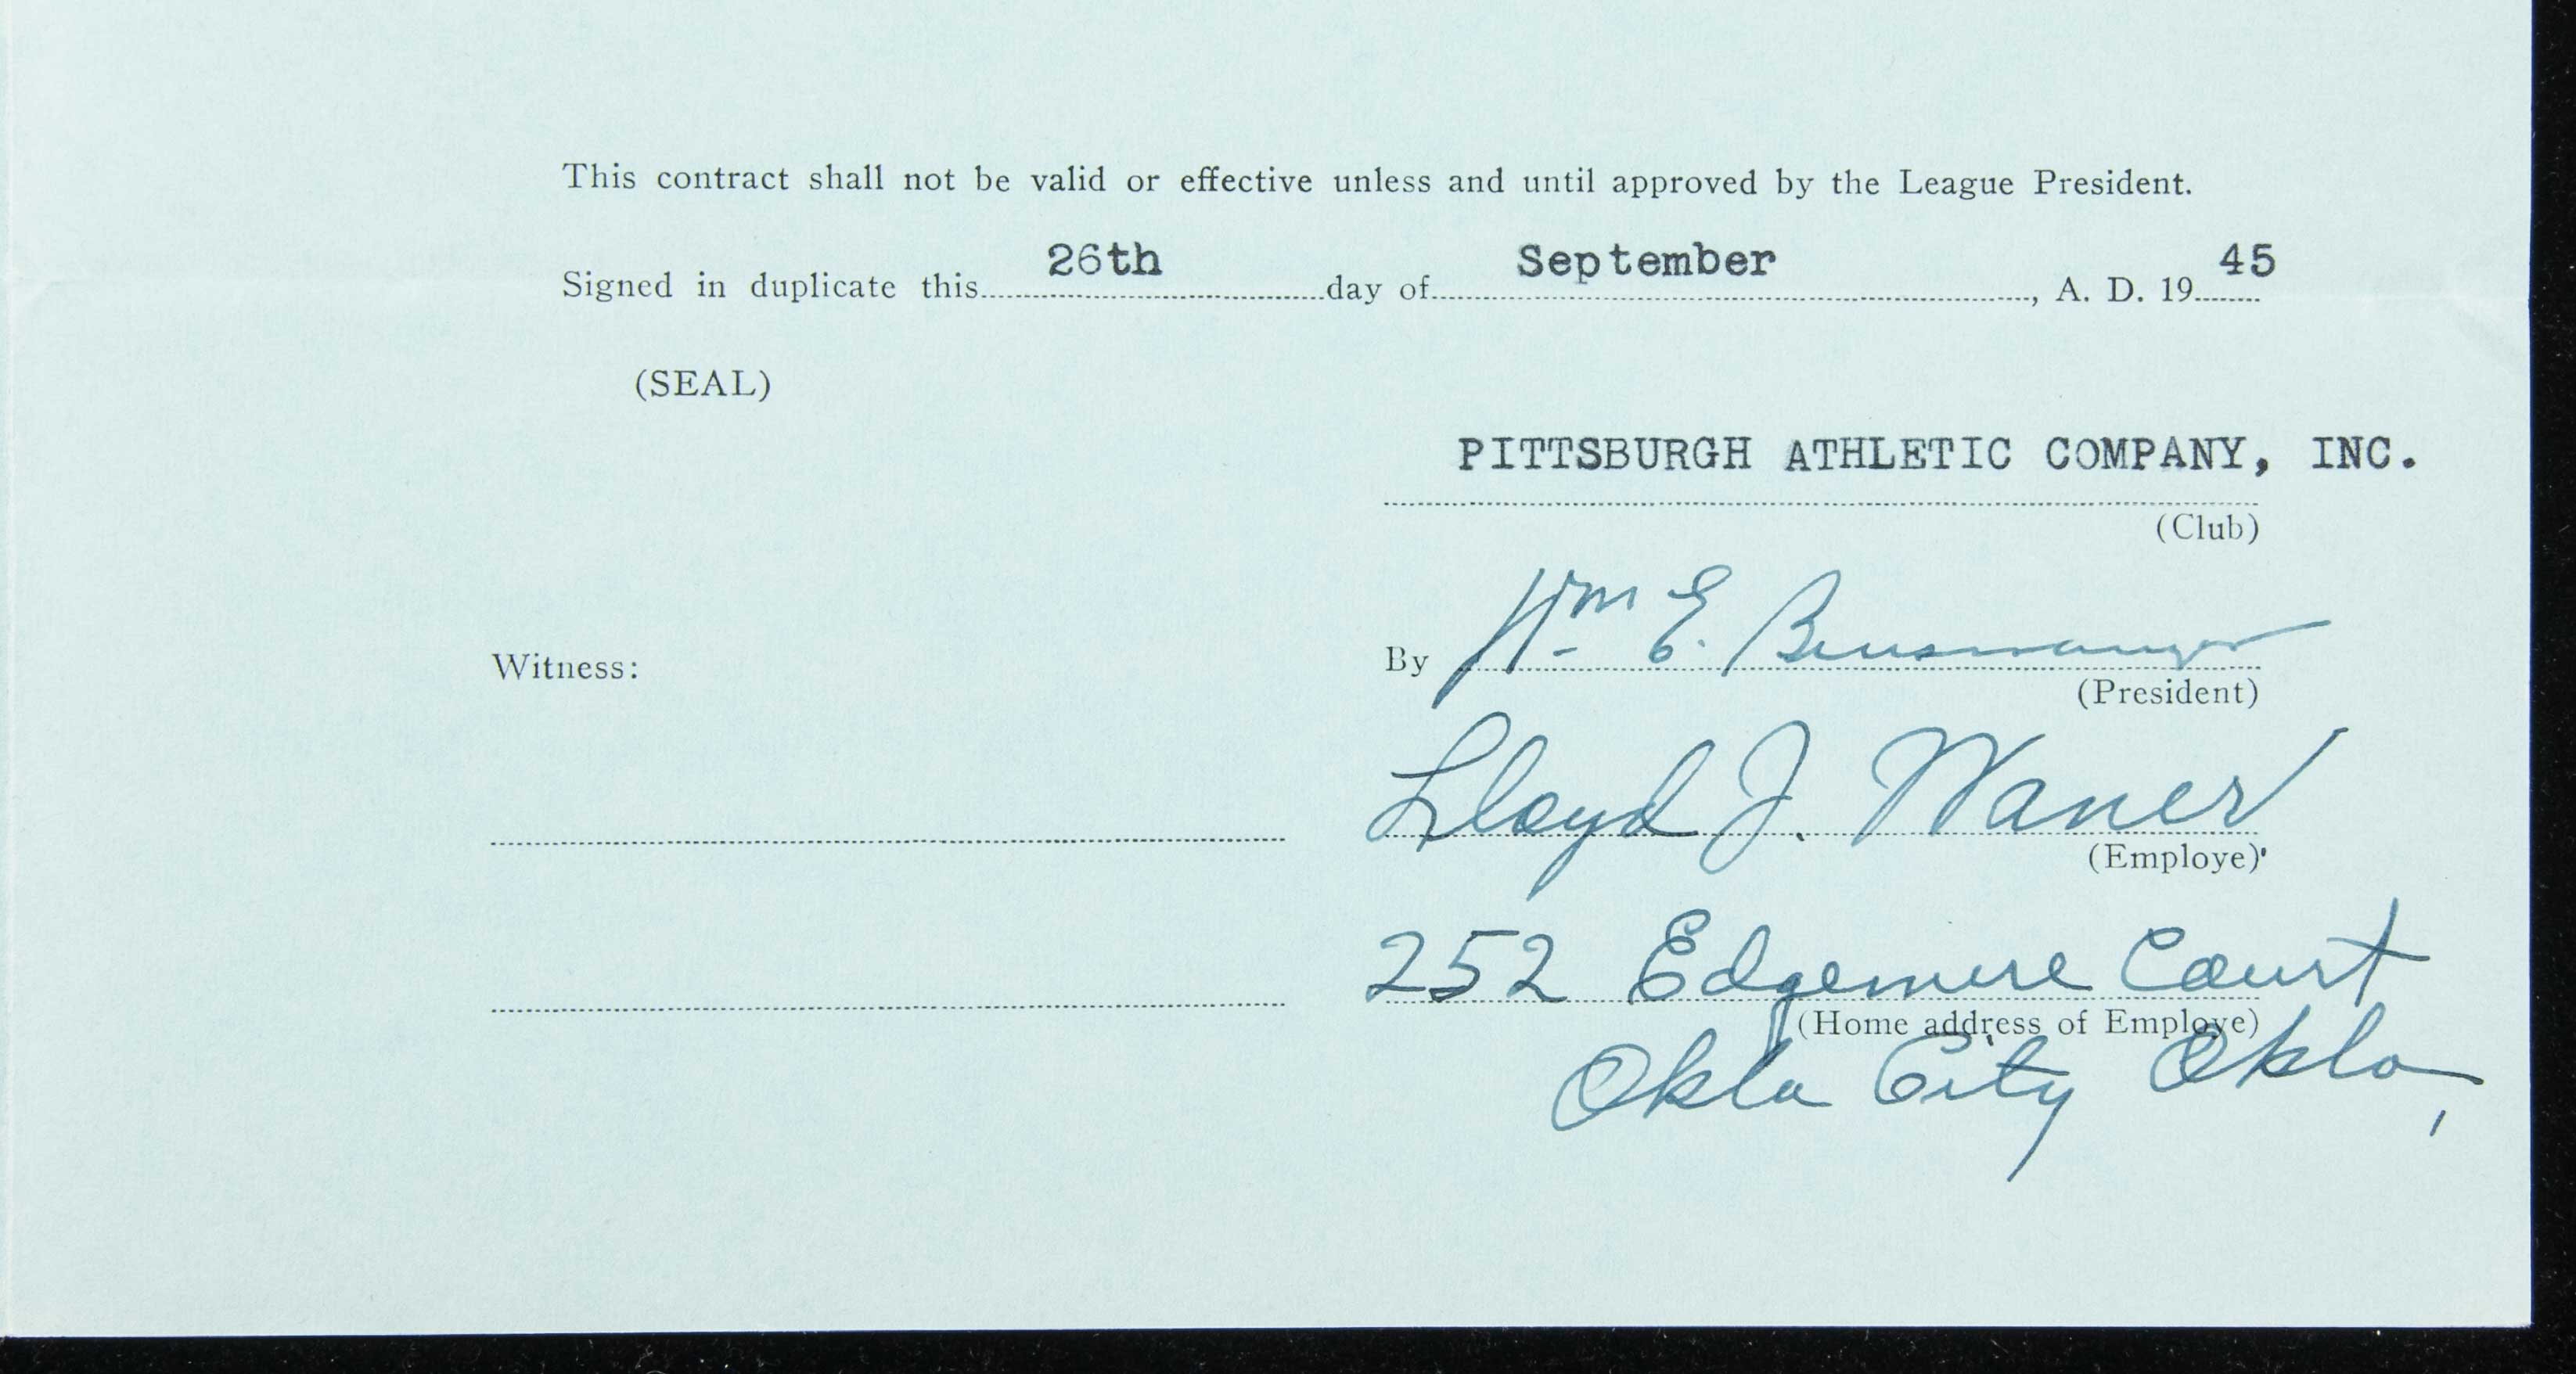 This contract shall not be valid or effective unless and until approved by the League President.
Signed in duplicate this 26th day of September, A. D. 19 45
(SEAL)
PITTSBURGH ATHLETIC COMPANY, INC.
(Club)
Witness:
By Wm E. Benswanger
(President)
Lloyd J. Waner
(Employe)
252 Edgemere Court
(Home address of Employe)
Okla City Okla,